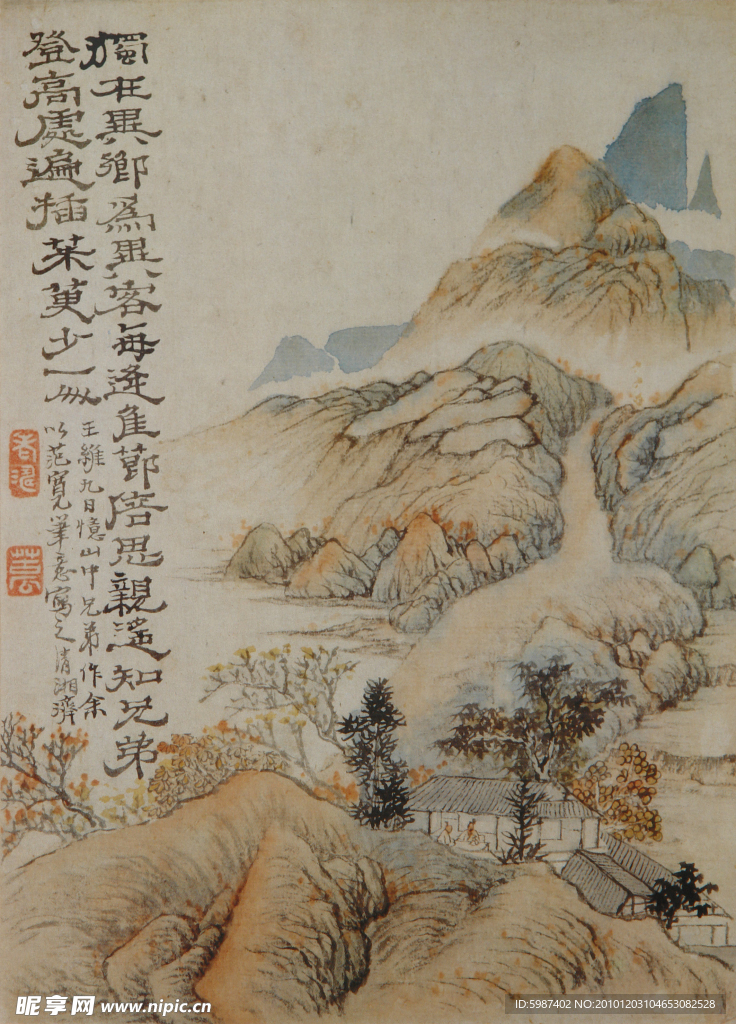 獨在異鄉爲異客每逢佳節倍思親遙知兄弟
登高處遍插茱萸少一人
王維九日憶山中兄弟作余
以范寬筆意寫之清湘濟
昵享网 www.nipic.cn
ID:5987402 NO:20101203104653082528